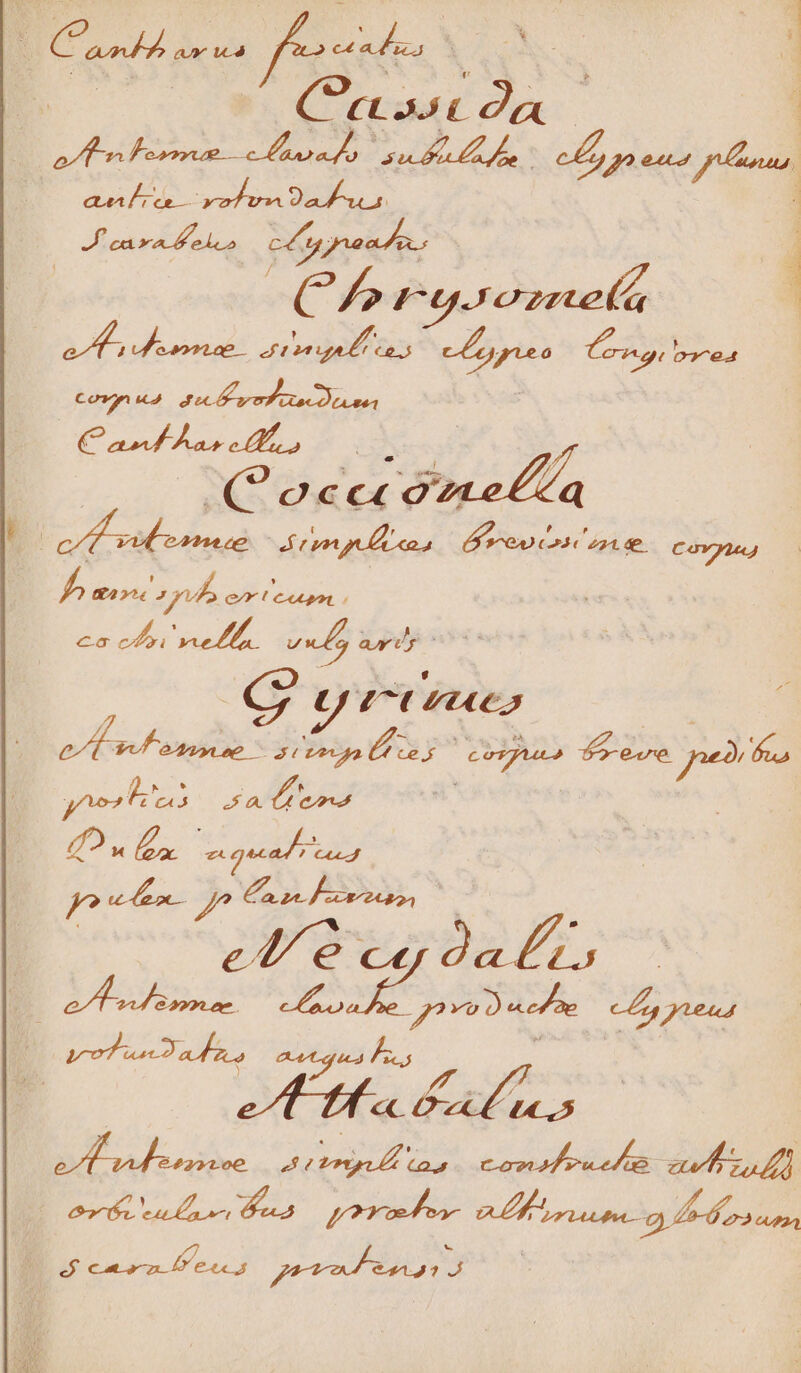 Cantharus fasciatus
Cassida
Antennæ clavato subulatæ clypeus planus
antice rotundatus
Scarabeus clypeatus
Chrysomela
Antennæ simplices clypeo longiores
corpus subrotundum
Cantharellus
Coccionella
Antennæ simplices brevissimæ corpus
hæmisphericum
cochinella vulgaris
Gyrinus
Antennæ simplices corpus breve pedibus
posticis saliens
Pulex aquaticus
pulex plantarum
Necydalis
Antennæ clavatæ productæ clypeus
rotundatus angustus
Attabalus
Antennæ simplices constructæ articulis
orbicularibus præter altimum globosum
Scarabeus pratensis